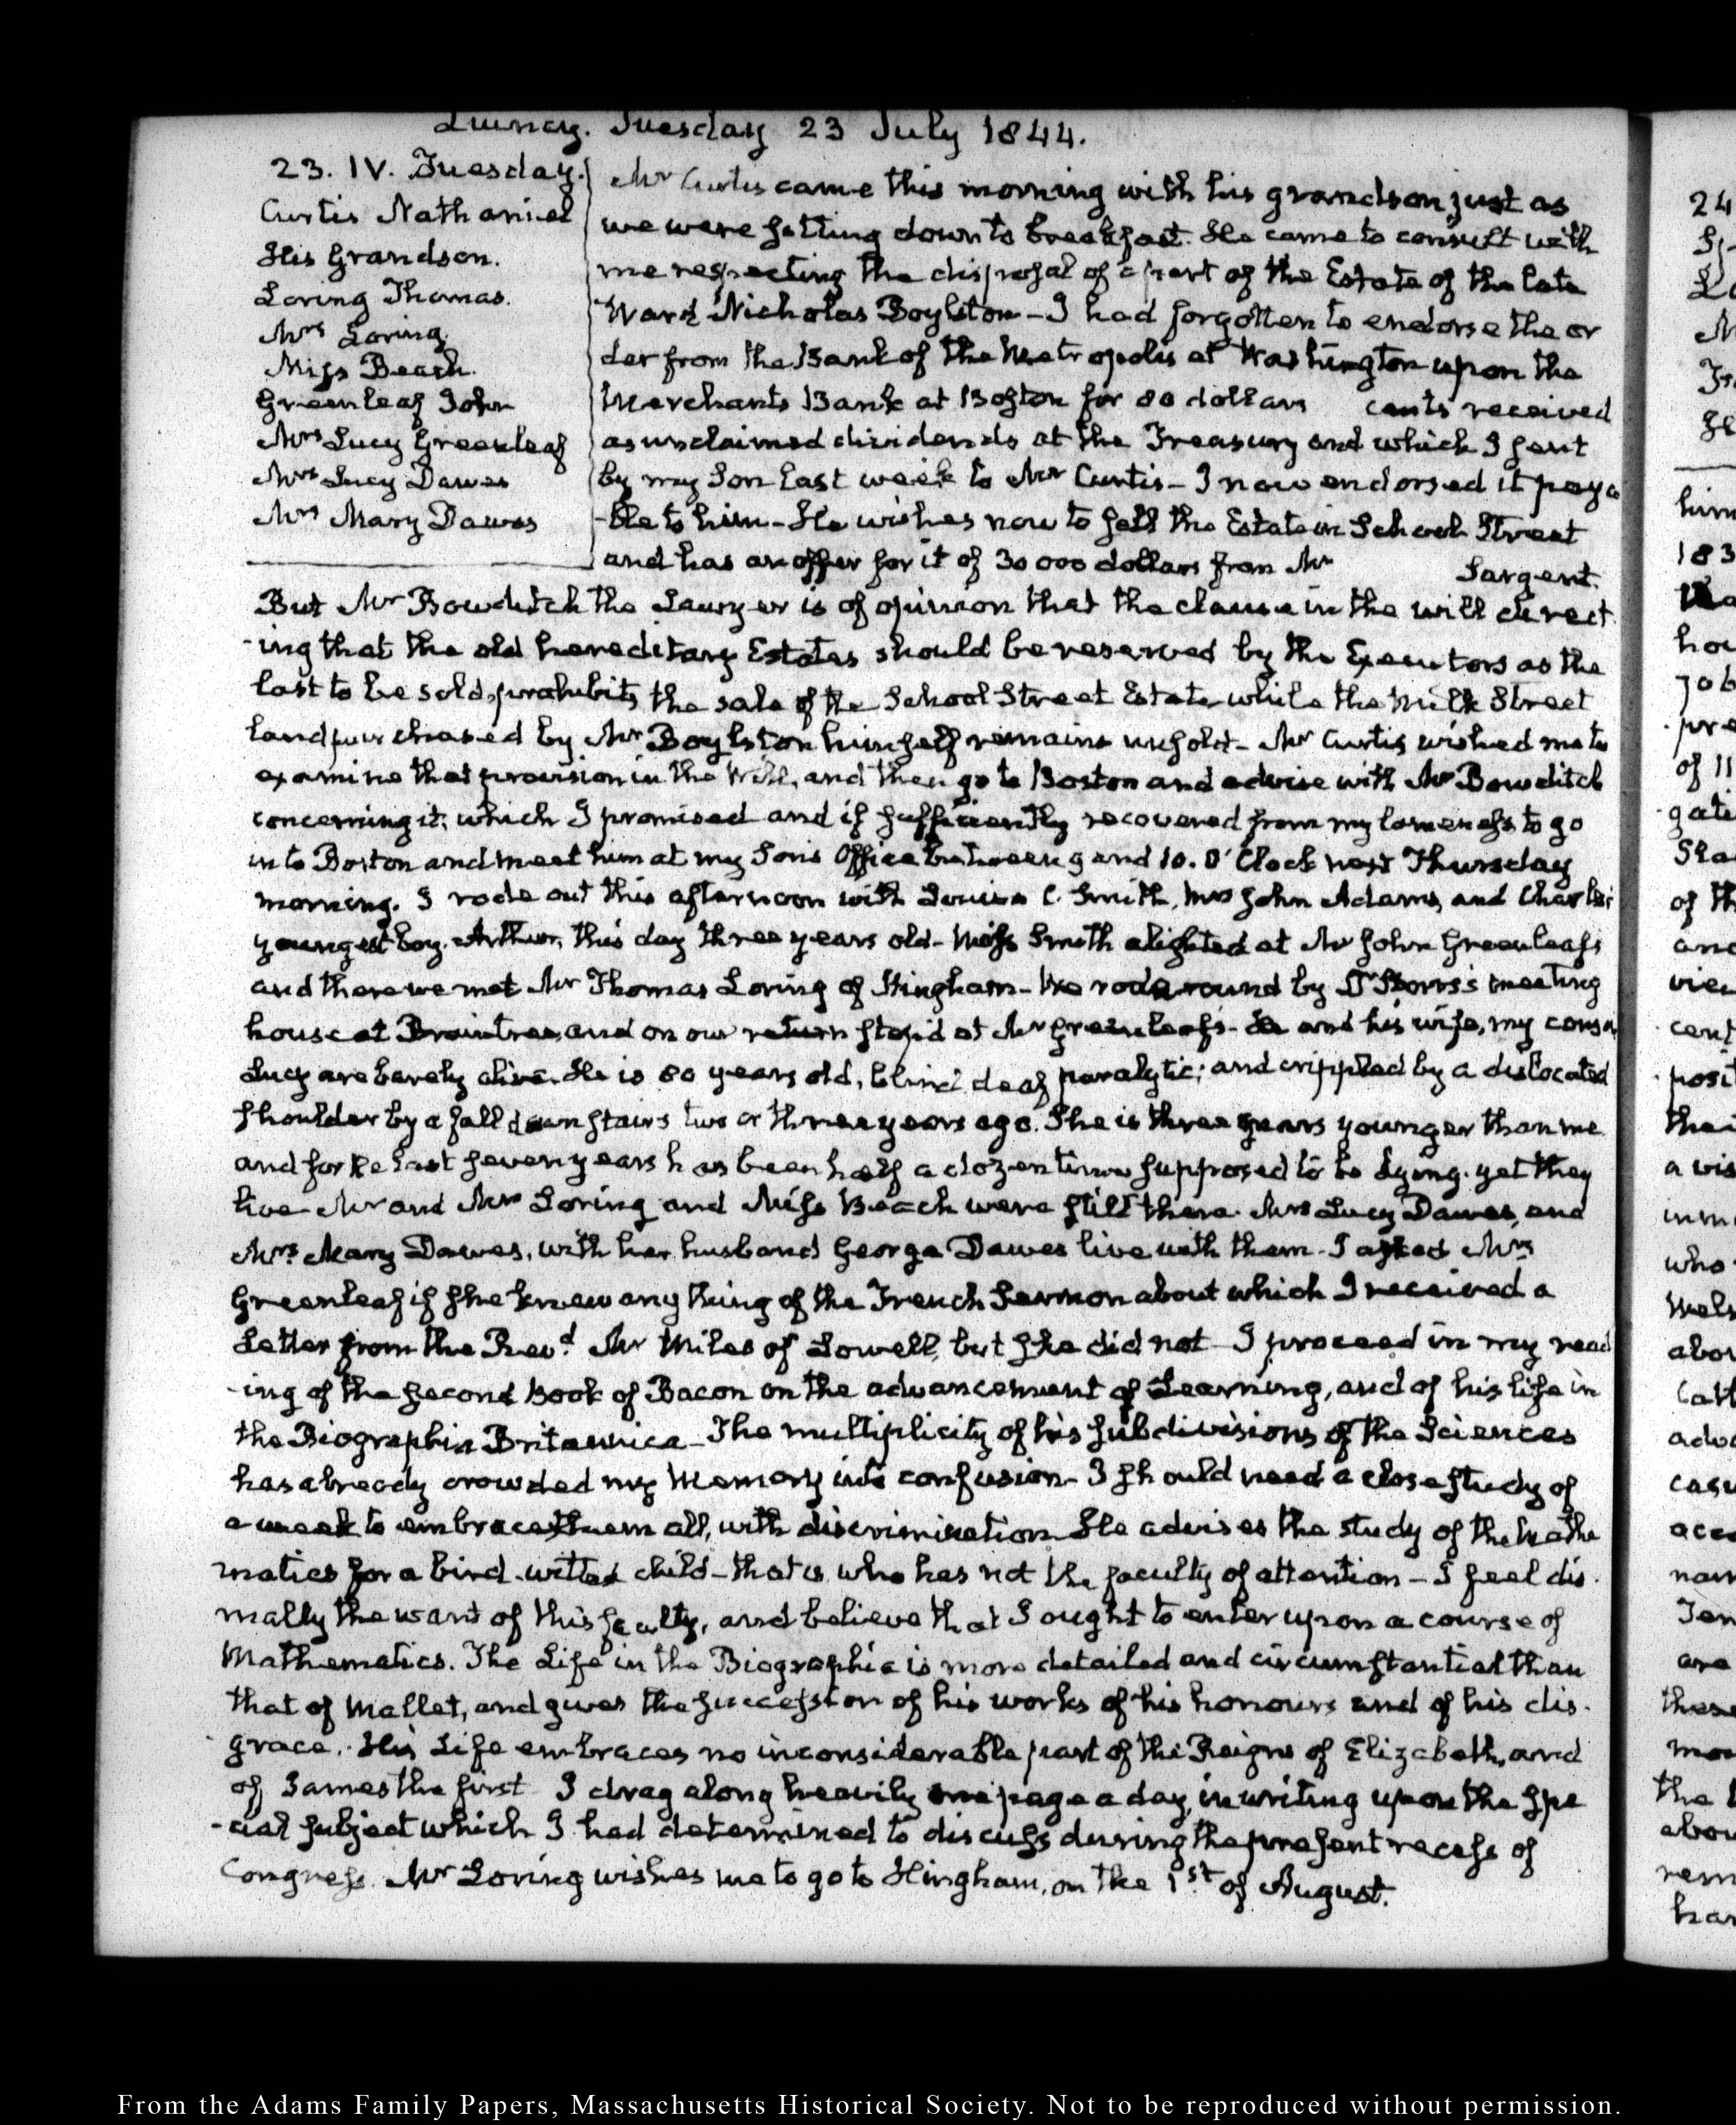 Quincy. Tuesday 23 July 1844.
23. IV. Tuesday.
Curtis Nathaniel
His Grandson.
Loring Thomas.
Mrs Loring
Miss Beach.
Greenleaf John
Mrs Lucy Greenleaf
Mrs Lucy Dawes
Mrs Mary Dawes
Mr Curtis came this morning with his grandson, just as
we were sitting down to breakfast. He came to consult with
me respecting the disposal of a part of the Estate of the late
Ward Nicholas Boylston - I had forgotten to endorse the or
der from the Bank of the Metropolis at Washington upon the
Merchants Bank at Boston for 80 dollars cents received
as unclaimed dividends at the Treasury and which I sent
by my Son last week to Mr Curtis - I now endorsed it paya
-ble to him - He wishes now to sell the Estate in School Street
and has an offer for it of 30 000 dollars from Mr Sargent.
But Mr Bowditch the Lawyer is of opinion that the clause in the will direct
-ing that the old hereditary Estates should be reserved by the Executors as the
last to be sold, prohibits the sale of the School Street Estate while the Milk Street
land purchased by Mr Boylston himself remains unsold - Mr Curtis wished me to
examine that provision in the Will, and then go to Boston and advise with Mr Bowditch
concerning it; which I promised and if sufficiently recovered from my lameness to go
into Boston and meet him at my Son's Office between 9 and 10. O'Clock next Thursday
morning. I rode out this afternoon with Louisa C. Smith, Mrs John Adams, and Charles's
youngest boy. Arthur, this day three years old - Miss Smith alighted at Mr John Greenleafs
and there we met Mr Thomas Loring of Hingham - We rode round by Dr Storrs's meeting
house at Braintree, and on our return stop'd at Mr Greenleafs - He and his wife, my cousin
Lucy are barely alive. He is 80 years old, blind deaf paralytic; and crippled by a dislocated
shoulder by a fall down stairs two or three years ago. She is three years younger than me
and for the last seven years has been half a dozen times supposed to be dying. yet they
live - Mr and Mrs Loring and Miss Beach were still there. Mrs Lucy Dawes, and
Mrs Mary Dawes, with her husband George Dawes live with them - I asked Mrs
Greenleaf if she knew any thing of the French Sermon about which I received a
Letter from the Revd. Mr Miles of Lowell, but she did not - I proceed in my read
-ing of the second Book of Bacon on the advancement of Learning, and of his life in
the Biographia Britannica - The multiplicity of his subdivisions of the Sciences
has already crowded my Memory into confusion - I should need a close study of
a week to embrace them all, with discrimination He advises the study of the Mathe
matics for a bird-witted child - that is who has not the faculty of attention - I feel dis
mally the want of this faculty, and believe that I ought to enter upon a course of
Mathematics. The Life in the Biographia is more detailed and circumstantial than
that of Mallet, and gives the succession of his works of his honours and of his dis-
grace. His Life embraces no inconsiderable part of the Reigns of Elizabeth, and
of James the first I drag along heavily one page a day, in writing upon the spe
-cial subject which I had determined to discuss during the present recess of
Congress. Mr Loring wishes me to go to Hingham, on the 1st. of August.
From the Adams Family Papers, Massachusetts Historical Society. Not to be reproduced without permission.